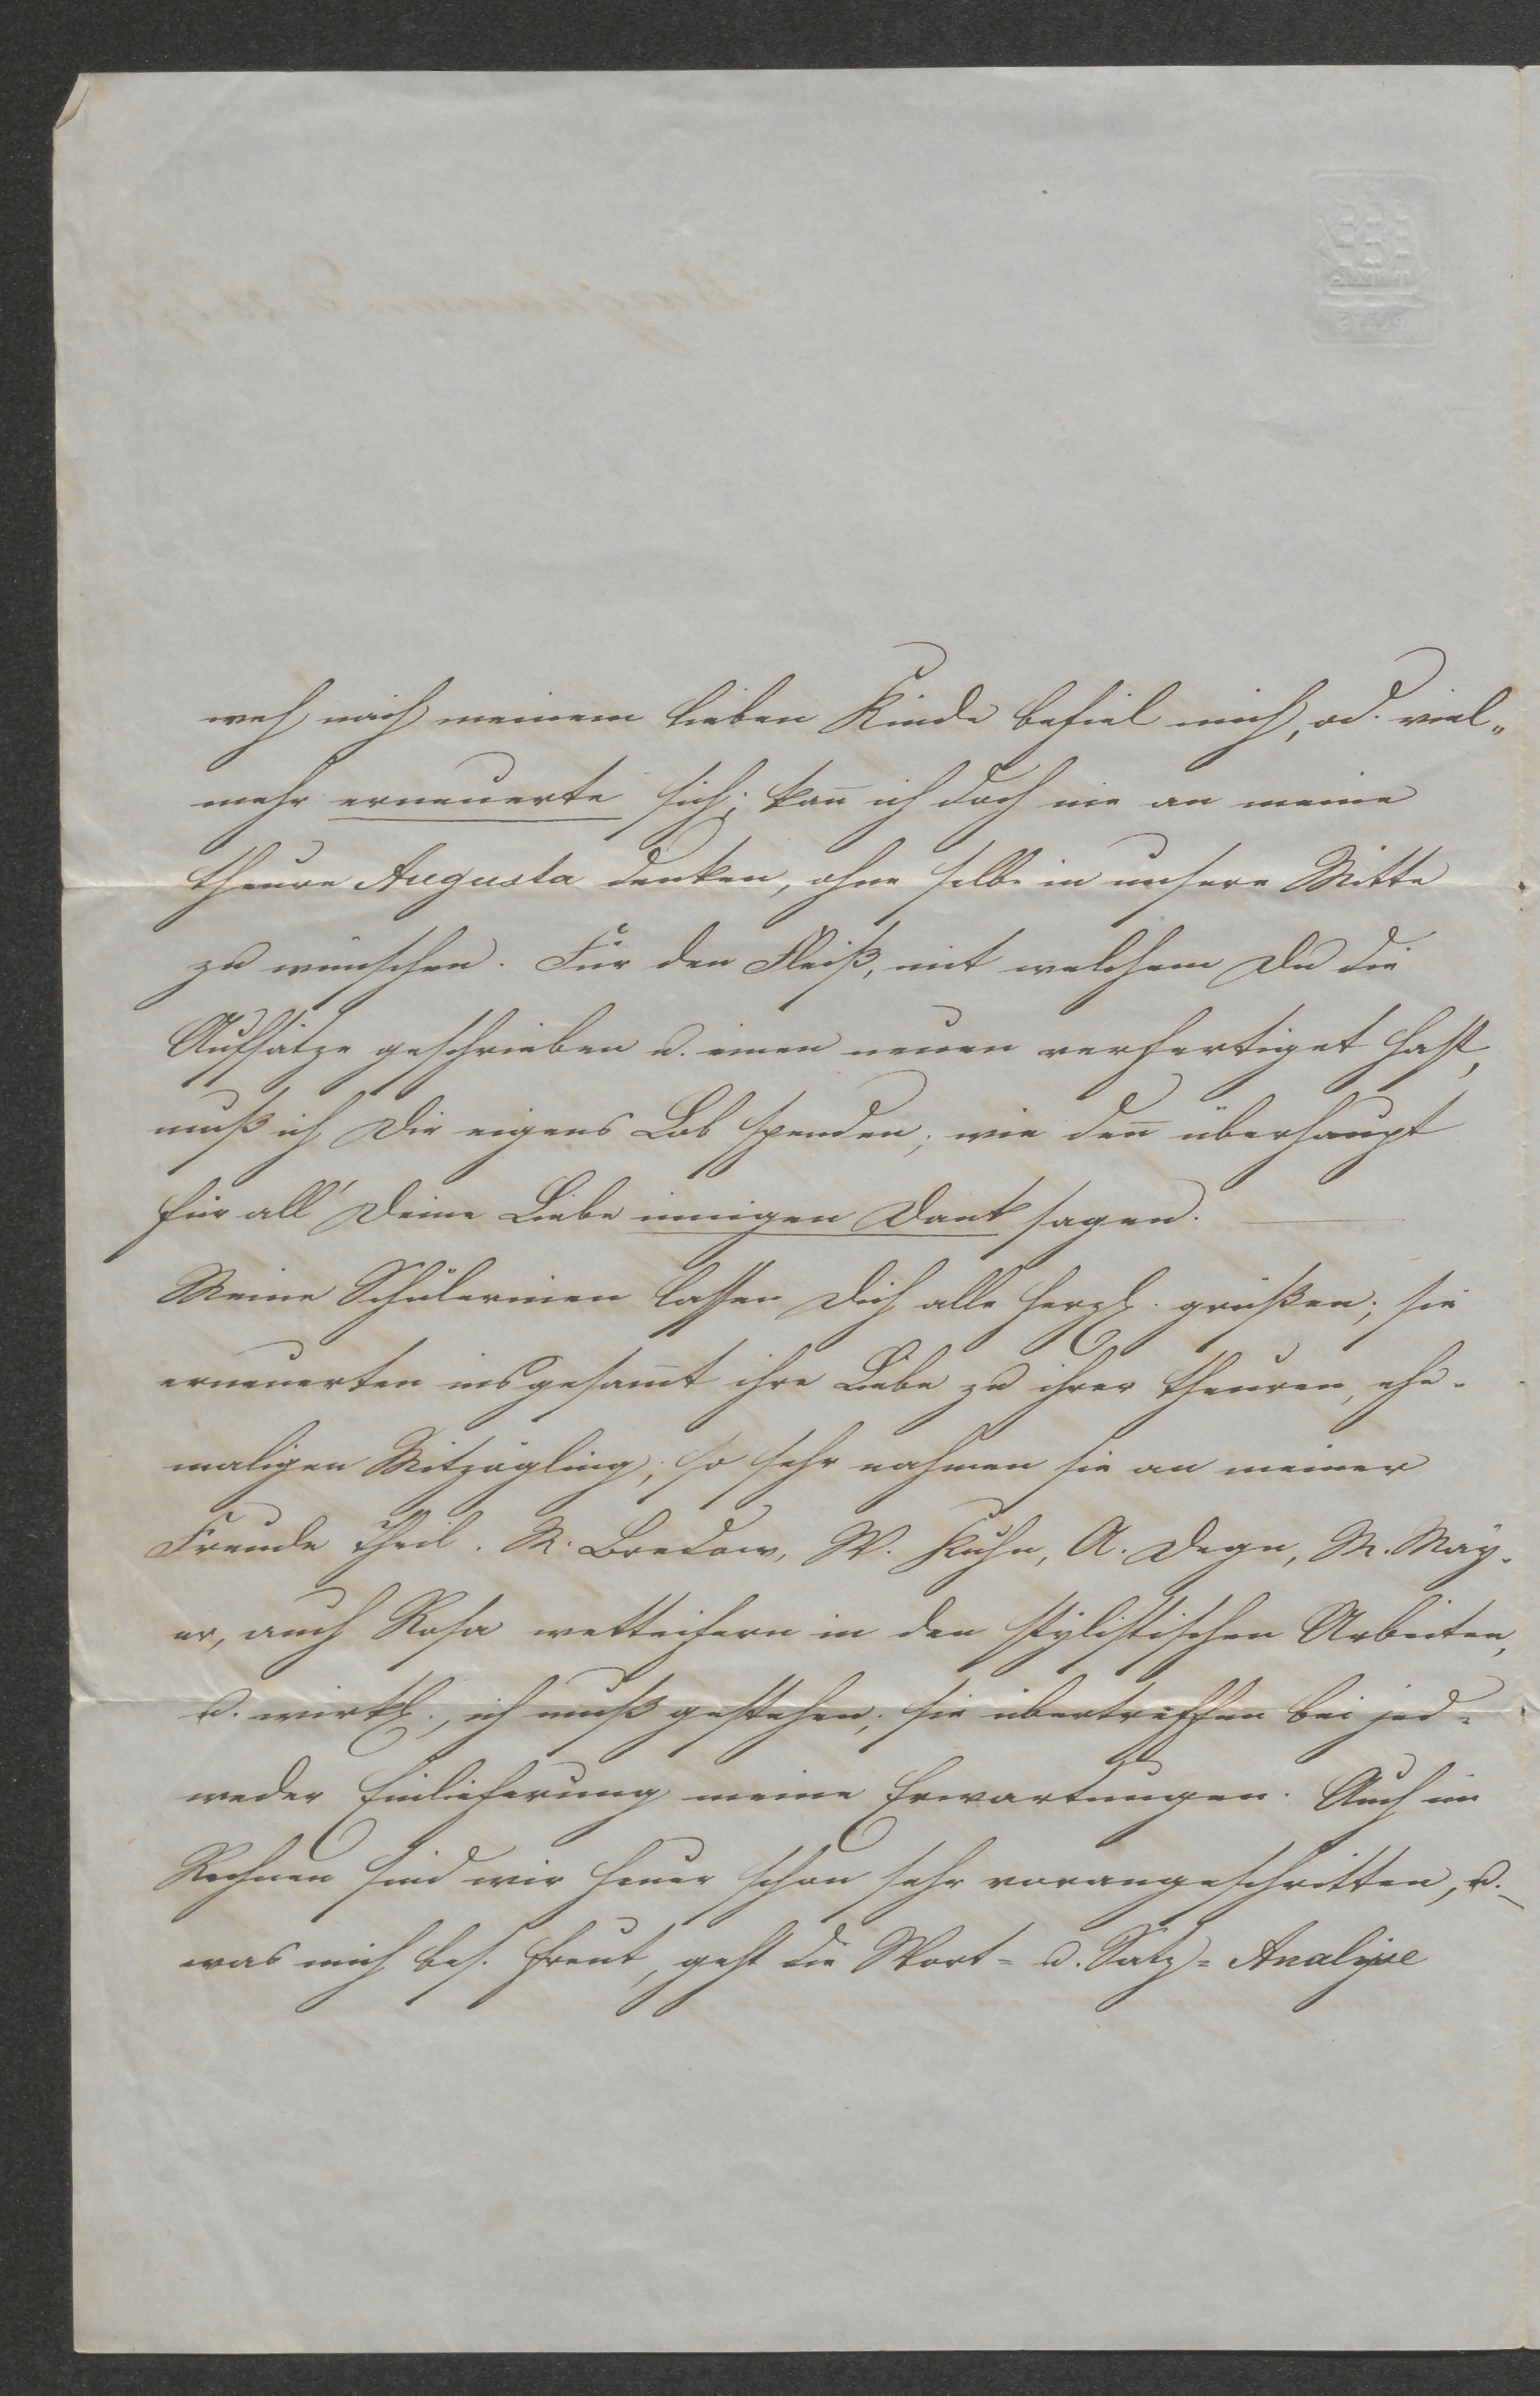 weh nach meinem lieben Kinde befiel mich, od. viel„
mehr erneuerte sich; kan̄ ich doch nie an meine
theure Augusta denken, ohne selbe in unsere Mitte
zu wünschen. Für den Fleiß, mit welchem Du die
Aufsätze geschrieben u. einen neuen verfertiget hast,
muß ich Dir eigens Lob spenden; wie den̄ überhaupt
für all' Deine Liebe innigen Dank sagen. —
Meine Schülerinen lassen Dich alle herzl. grüßen; sie
erneuerten insgesam̄t ihre Liebe zu ihrer theuren, ehe-
maligen Mitzögling; so sehr nahmen sie an meiner
Freude Theil. M. Bredow, W. Kuhn, A. Degn, M. May-
er, auch Rosa wetteifern in den stylistischen Arbeiten,
u. wirkl., ich muß gestehen; sie übertreffen bei jed-
weder Einlieferung meine Erwartungen. Auch im
Rechnen sind wir heuer schon sehr vorangeschritten, u.
was mich bes. freut, geht die Wort- u. Satz-Analyse